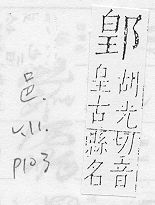 胡光切音
皇古縣名
邑.
p103